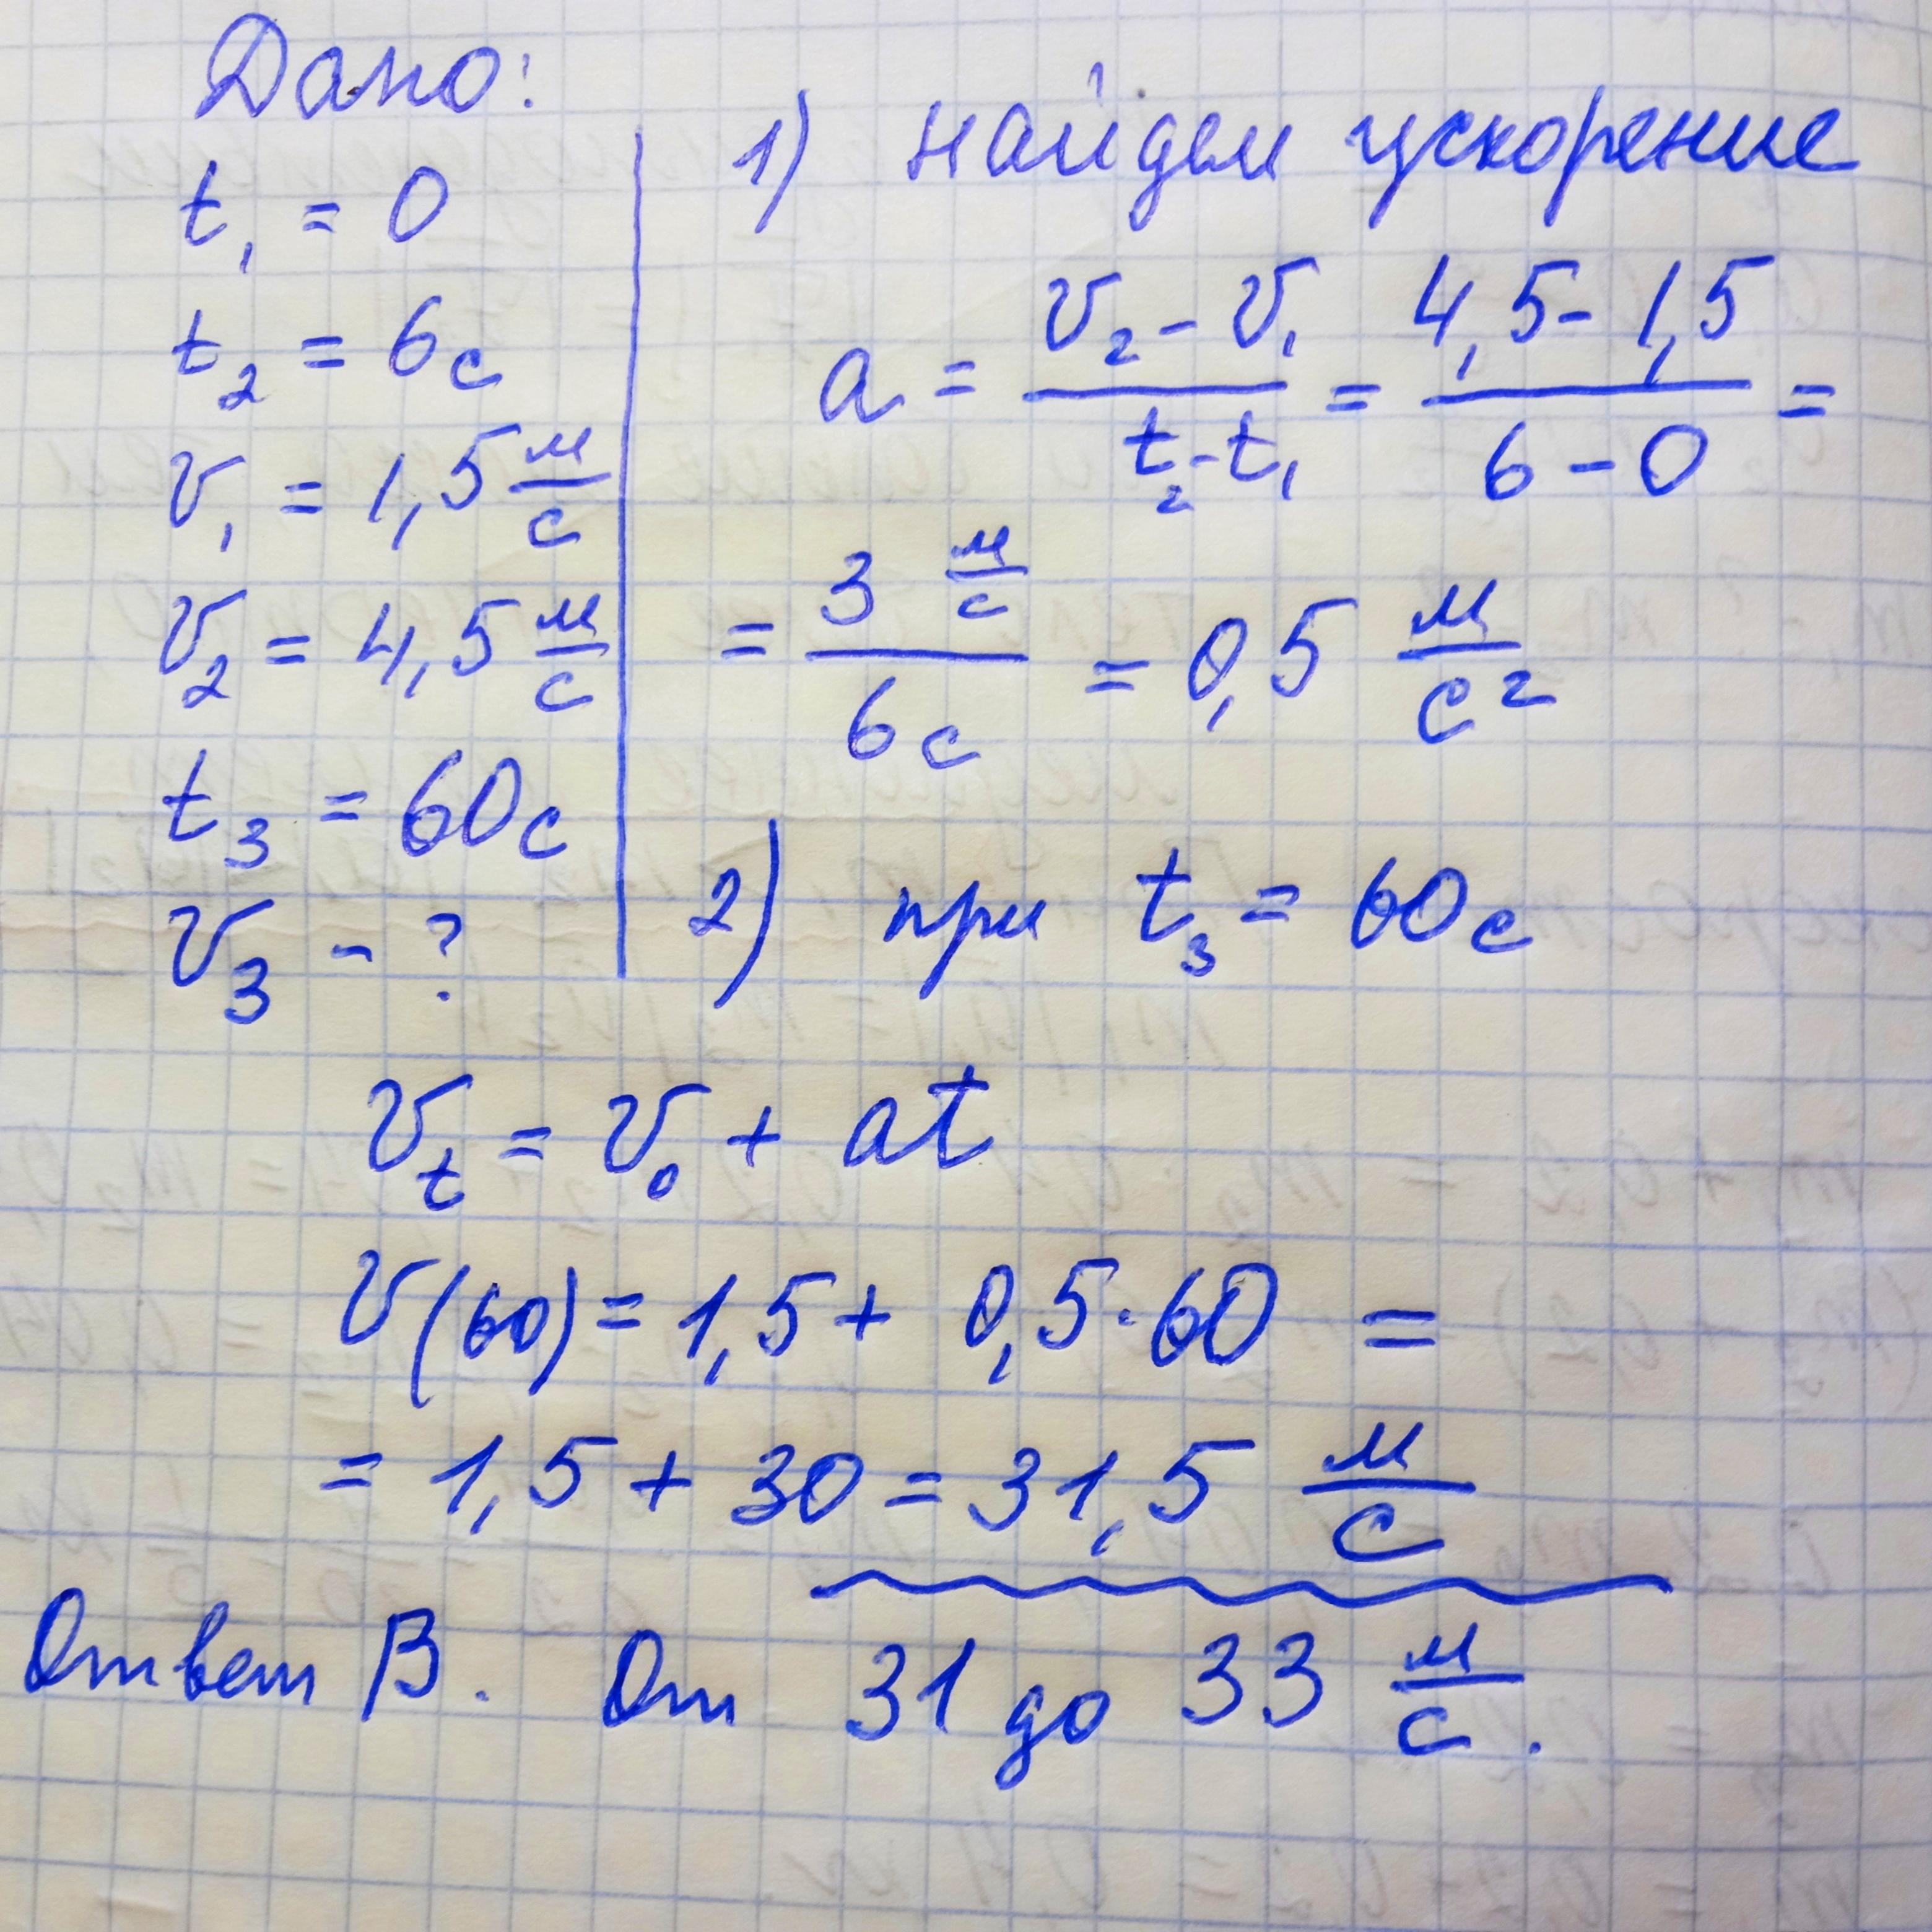 Дано:
t₁ = 0
t₂ = 6 с
v₁ = 1,5 м/с
v₂ = 4,5 м/с
t₃ = 60 с
v₃ - ?
1) найдем ускорение
a = (v₂ - v₁)/(t₂ - t₁) = (4,5 - 1,5)/(6 - 0) =
= (3 м/с)/(6 с) = 0,5 м/с²
2) при t₃ = 60 с
v_t = v₀ + at
v(60) = 1,5 + 0,5·60 =
= 1,5 + 30 = 31,5 м/с
Ответ В. От 31 до 33 м/с.